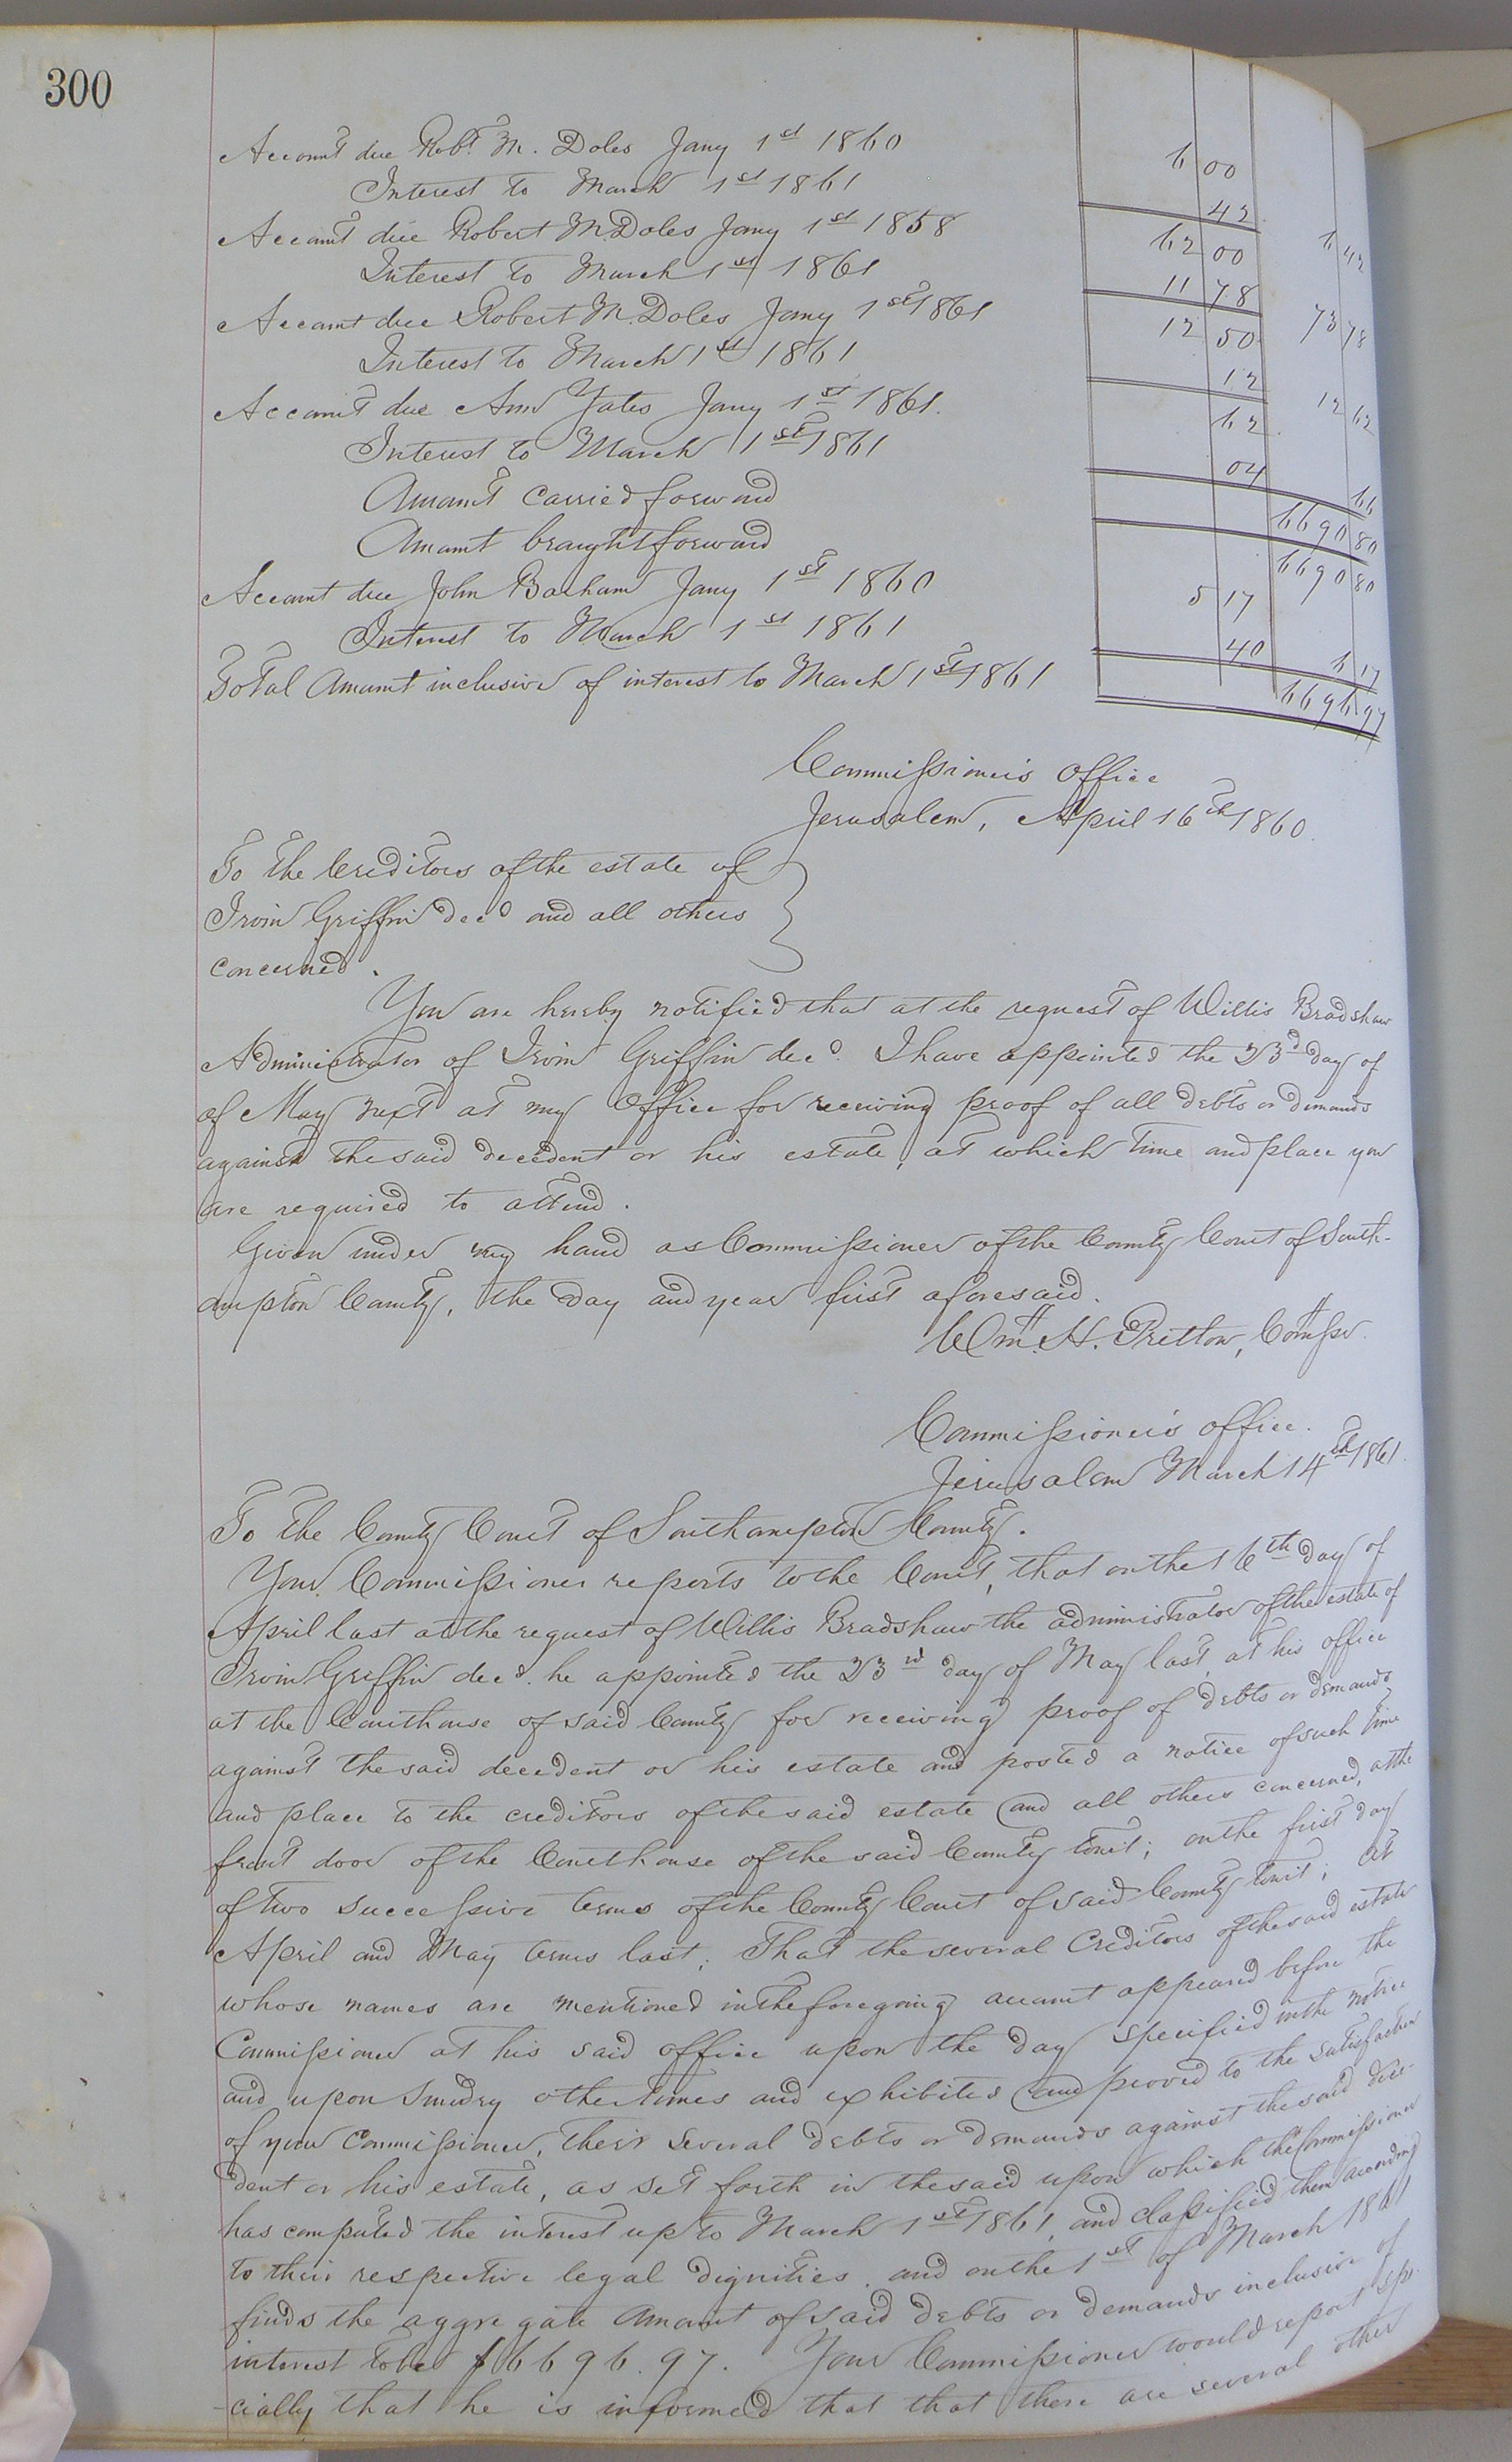 300
Account due Robt. M. Doles Jany 1st 1860 6 00
Interest to March 1st 1861 42 6 42
Account due Robert M. Doles Jany 1st 1858 62 00
Interest to March 1st 1861 11 78 73 78
Account due Robert M. Doles Jany 1st 1861 12 50
Interest to March 1st 1861 12 12 62
Account due Ann Yates Jany 1st 1861. 62
Interest to March 1st 1861 04 66
Amount carried forward 6690 80
Amount brought forward 6690 80
Account due John Barham Jany 1st 1860 5 17
Interest to March 1st 1861 40 6 17
Total Amount inclusive of interest to March 1st 1861 6696 97
Commissioner's office
Jerusalem, April 16th 1860.
To the Creditors of the estate of
Irvin Griffin decd and all others
concerned.
You are hereby notified that at the request of Willis Bradshaw
Administrator of Irvin Griffin decd. I have appointed the 23d day of
of May next at my office for receiving proof of all debts or demands
against the said decedent or his estate, at which time and place you
are required to attend.
Given under my hand as Commissioner of the County Court of South-
ampton County, the day and year first aforesaid.
Wm. H. Pretlow, Comssr.
Commissioner's office.
Jerusalem March 14th 1861.
To the County Court of Southampton County.
Your Commissioner reports to the Court, that on the 16th day of
April last at the request of Willis Bradshaw the administrator of the estate of
Irvin Griffin decd. he appointed the 23rd day of May last, at his office
at the Courthouse of said County for receiving proof of debts or demands
against the said decedent or his estate and posted a notice of such time
and place to the creditors of the said estate and all others concerned, at the
front door of the Courthouse of the said County Court; on the first day
of two successive terms of the County Court of said County Court; at
April and May terms last. That the several Creditors of the said estate
whose names are mentioned in the foregoing account appeared before the
Commissioner at his said office upon the day specified in the notice
and upon sundry other times and exhibited and proved to the satisfaction
of your Commissioner, their several debts or demands against the said dece-
dent or his estate, as set forth in the said upon which the Commissioner
has computed the interest up to March 1st 1861, and classified them according
to their respective legal dignities, and on the 1st of March 1861
finds the aggregate amount of said debts or demands inclusive of
interest to be $6696.97. Your Commissioner would report spe-
-cially that he is informed that that there are several other